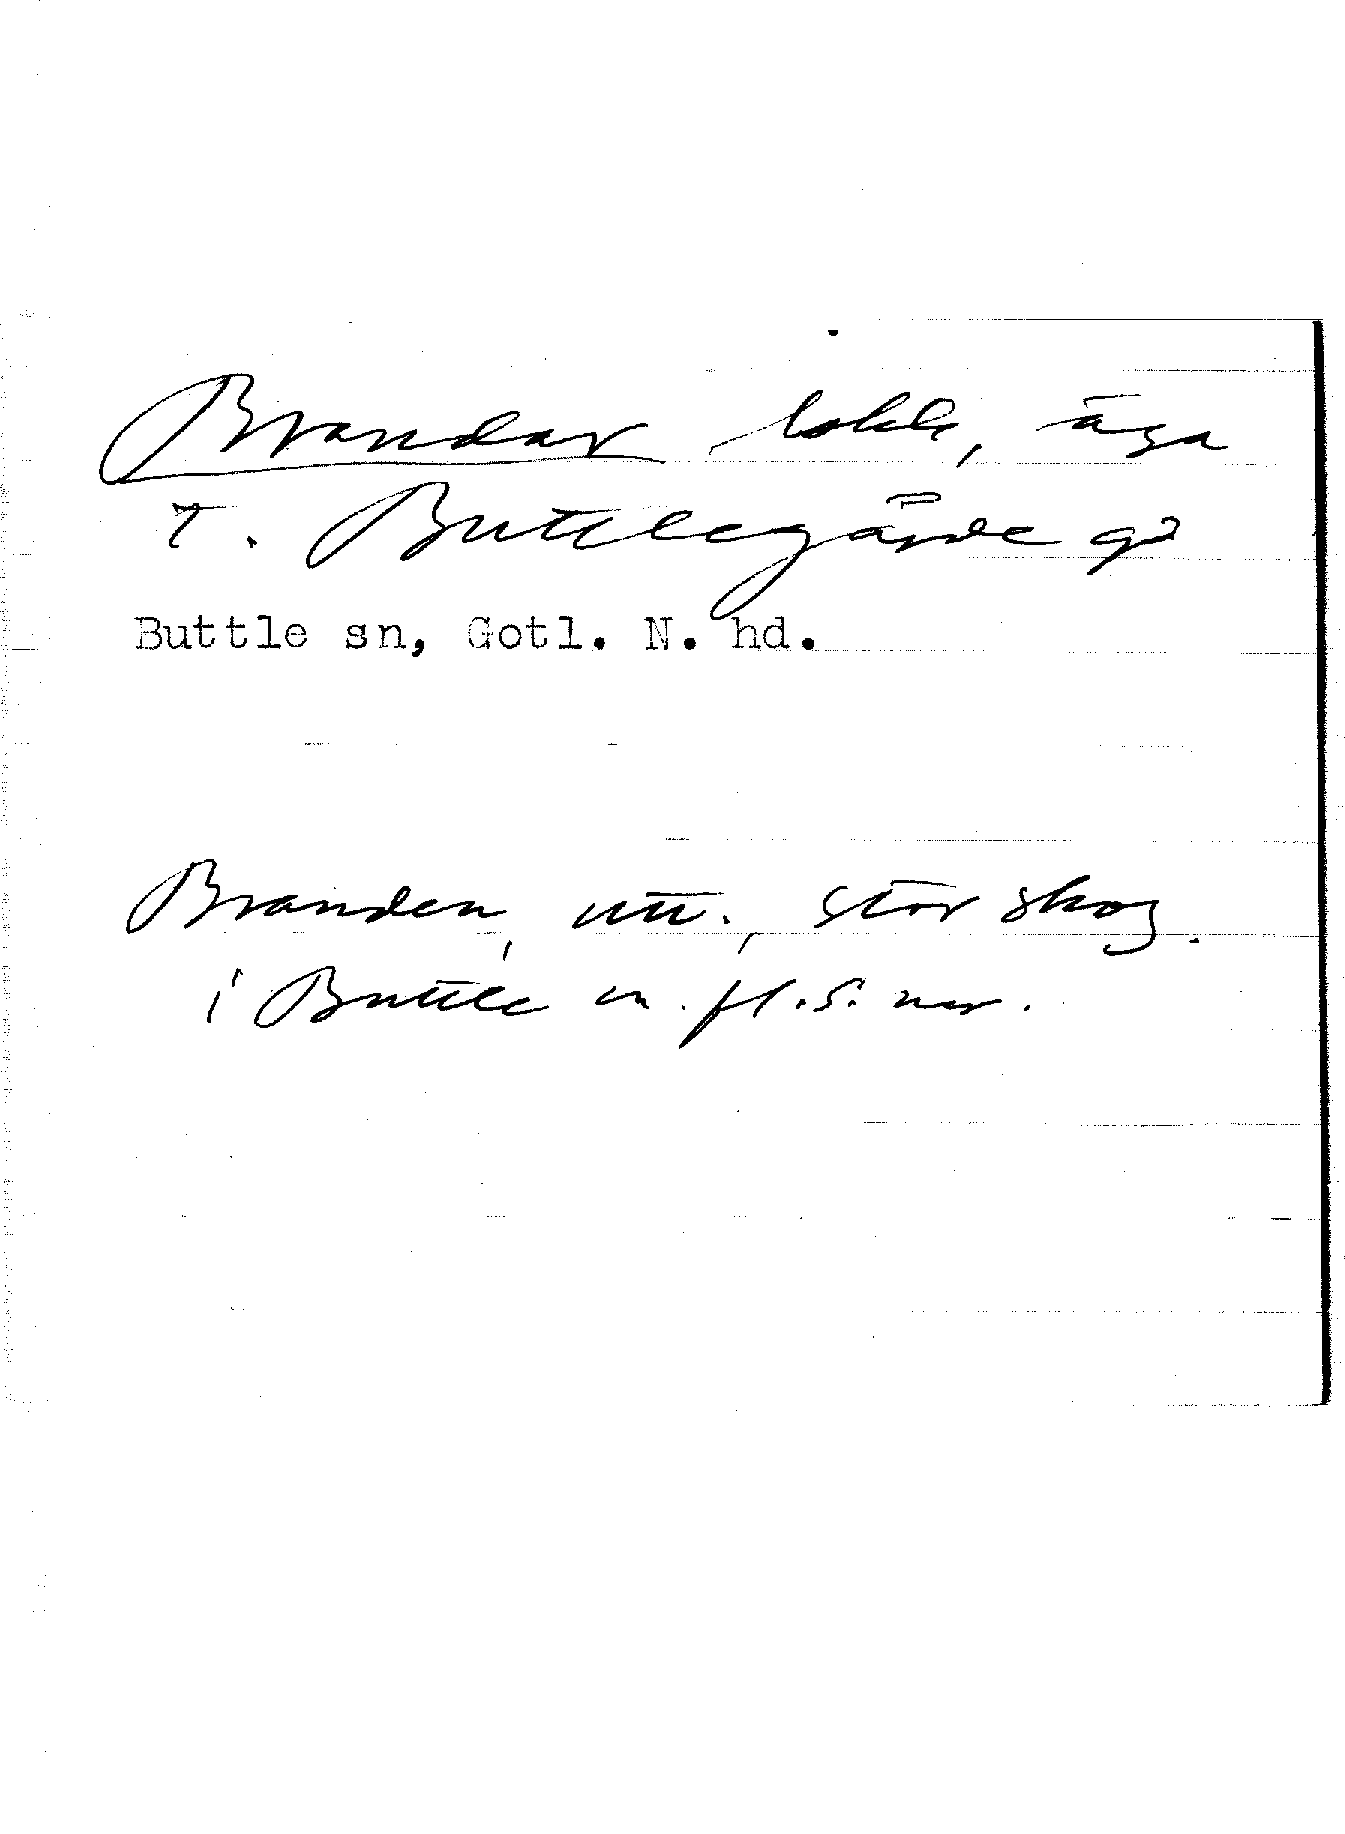 Brandar lokk, äga
T. Buttlegårde gd
Buttle sn, Gotl. N. hd.
Branden, utt., stor skog.
i Buttle m. fl. s:nar.